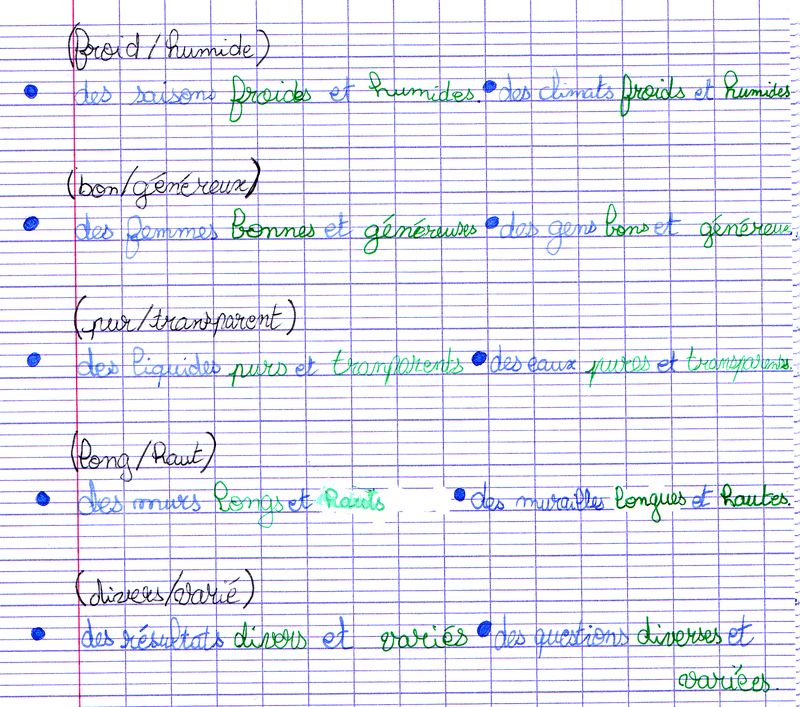 (froid/humide)
• des saisons froides et humides. • des climats froids et humides
(bon/généreux)
• des femmes bonnes et généreuses • des gens bons et généreux
(pur/transparent)
• des liquides purs et transparents • des eaux pures et transparents.
(long/haut)
• des murs longs et hauts • des murailles longues et hautes.
(divers/varié)
• des résultats divers et variés • des questions diverses et
variées.